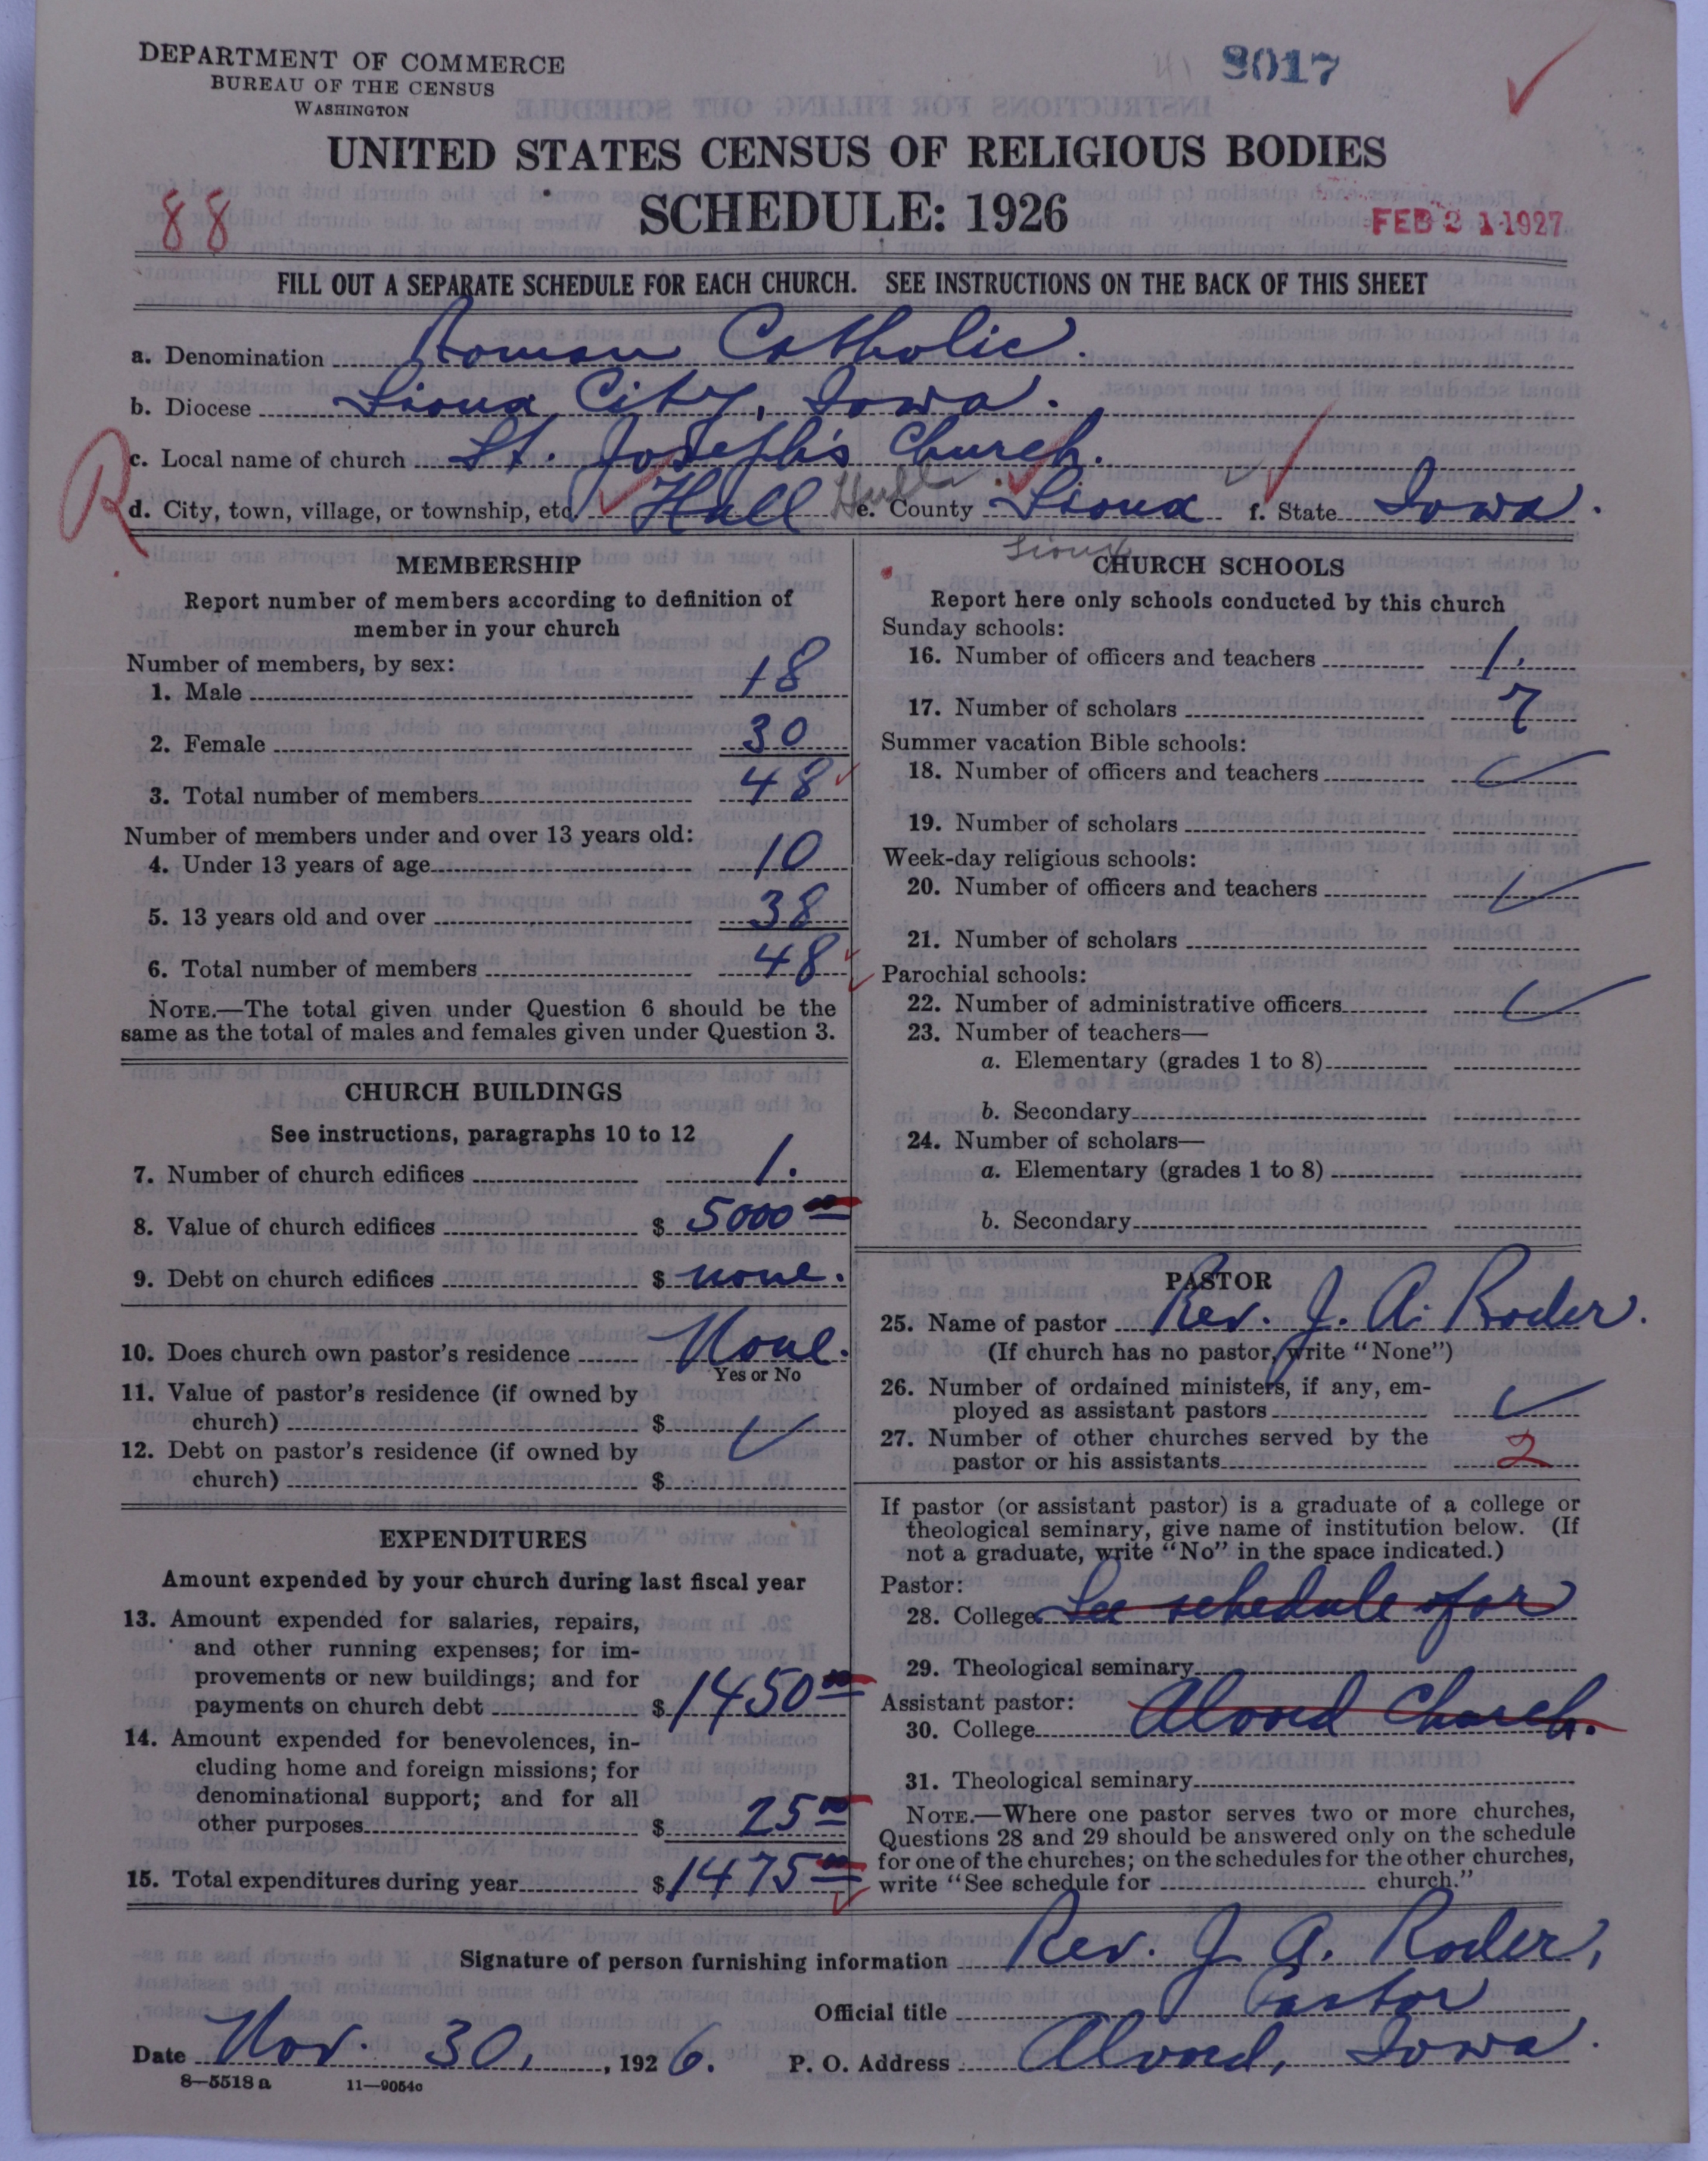 DEPARTMENT OF COMMERCE
BUREAU OF THE CENSUS
WASHINGTON
41 8017
UNITED STATES CENSUS OF RELIGIOUS BODIES
SCHEDULE: 1926
88
FEB 21 1927
FILL OUT A SEPARATE SCHEDULE FOR EACH CHURCH. SEE INSTRUCTIONS ON THE BACK OF THIS SHEET
a. Denomination Roman Catholic.
b. Diocese Sioux City, Iowa.
c. Local name of church St. Joseph's Church.
R
d. City, town, village, or township, etc. Hull Hull e. County Sioux f. State Iowa.
Sioux
MEMBERSHIP
Report number of members according to definition of
member in your church
Number of members, by sex:
1. Male 18
2. Female 30
3. Total number of members 48
Number of members under and over 13 years old:
4. Under 13 years of age 10
5. 13 years old and over 38
6. Total number of members 48
NOTE.—The total given under Question 6 should be the
same as the total of males and females given under Question 3.
CHURCH BUILDINGS
See instructions, paragraphs 10 to 12
7. Number of church edifices 1.
8. Value of church edifices $ 5000 00
9. Debt on church edifices $ none.
10. Does church own pastor's residence None.
Yes or No
11. Value of pastor's residence (if owned by
church) $
12. Debt on pastor's residence (if owned by
church) $
EXPENDITURES
Amount expended by your church during last fiscal year
13. Amount expended for salaries, repairs,
and other running expenses; for im-
provements or new buildings; and for
payments on church debt $ 1450 00
14. Amount expended for benevolences, in-
cluding home and foreign missions; for
denominational support; and for all
other purposes $ 25 00
15. Total expenditures during year $ 1475 00
CHURCH SCHOOLS
Report here only schools conducted by this church
Sunday schools:
16. Number of officers and teachers 1.
17. Number of scholars 7
Summer vacation Bible schools:
18. Number of officers and teachers
19. Number of scholars
Week-day religious schools:
20. Number of officers and teachers
21. Number of scholars
Parochial schools:
22. Number of administrative officers
23. Number of teachers—
a. Elementary (grades 1 to 8)
b. Secondary
24. Number of scholars—
a. Elementary (grades 1 to 8)
b. Secondary
PASTOR
25. Name of pastor Rev. J. A. Roder.
(If church has no pastor, write "None")
26. Number of ordained ministers, if any, em-
ployed as assistant pastors
27. Number of other churches served by the
pastor or his assistants 2
If pastor (or assistant pastor) is a graduate of a college or
theological seminary, give name of institution below. (If
not a graduate, write "No" in the space indicated.)
Pastor:
28. College See schedule for
29. Theological seminary
Assistant pastor:
30. College Alvord Church.
31. Theological seminary
NOTE.—Where one pastor serves two or more churches,
Questions 28 and 29 should be answered only on the schedule
for one of the churches; on the schedules for the other churches,
write "See schedule for church."
Signature of person furnishing information Rev. J. A. Roder,
Official title Pastor
Date Nov. 30, 1926. P. O. Address Alvord, Iowa.
8—5518a 11—9054c